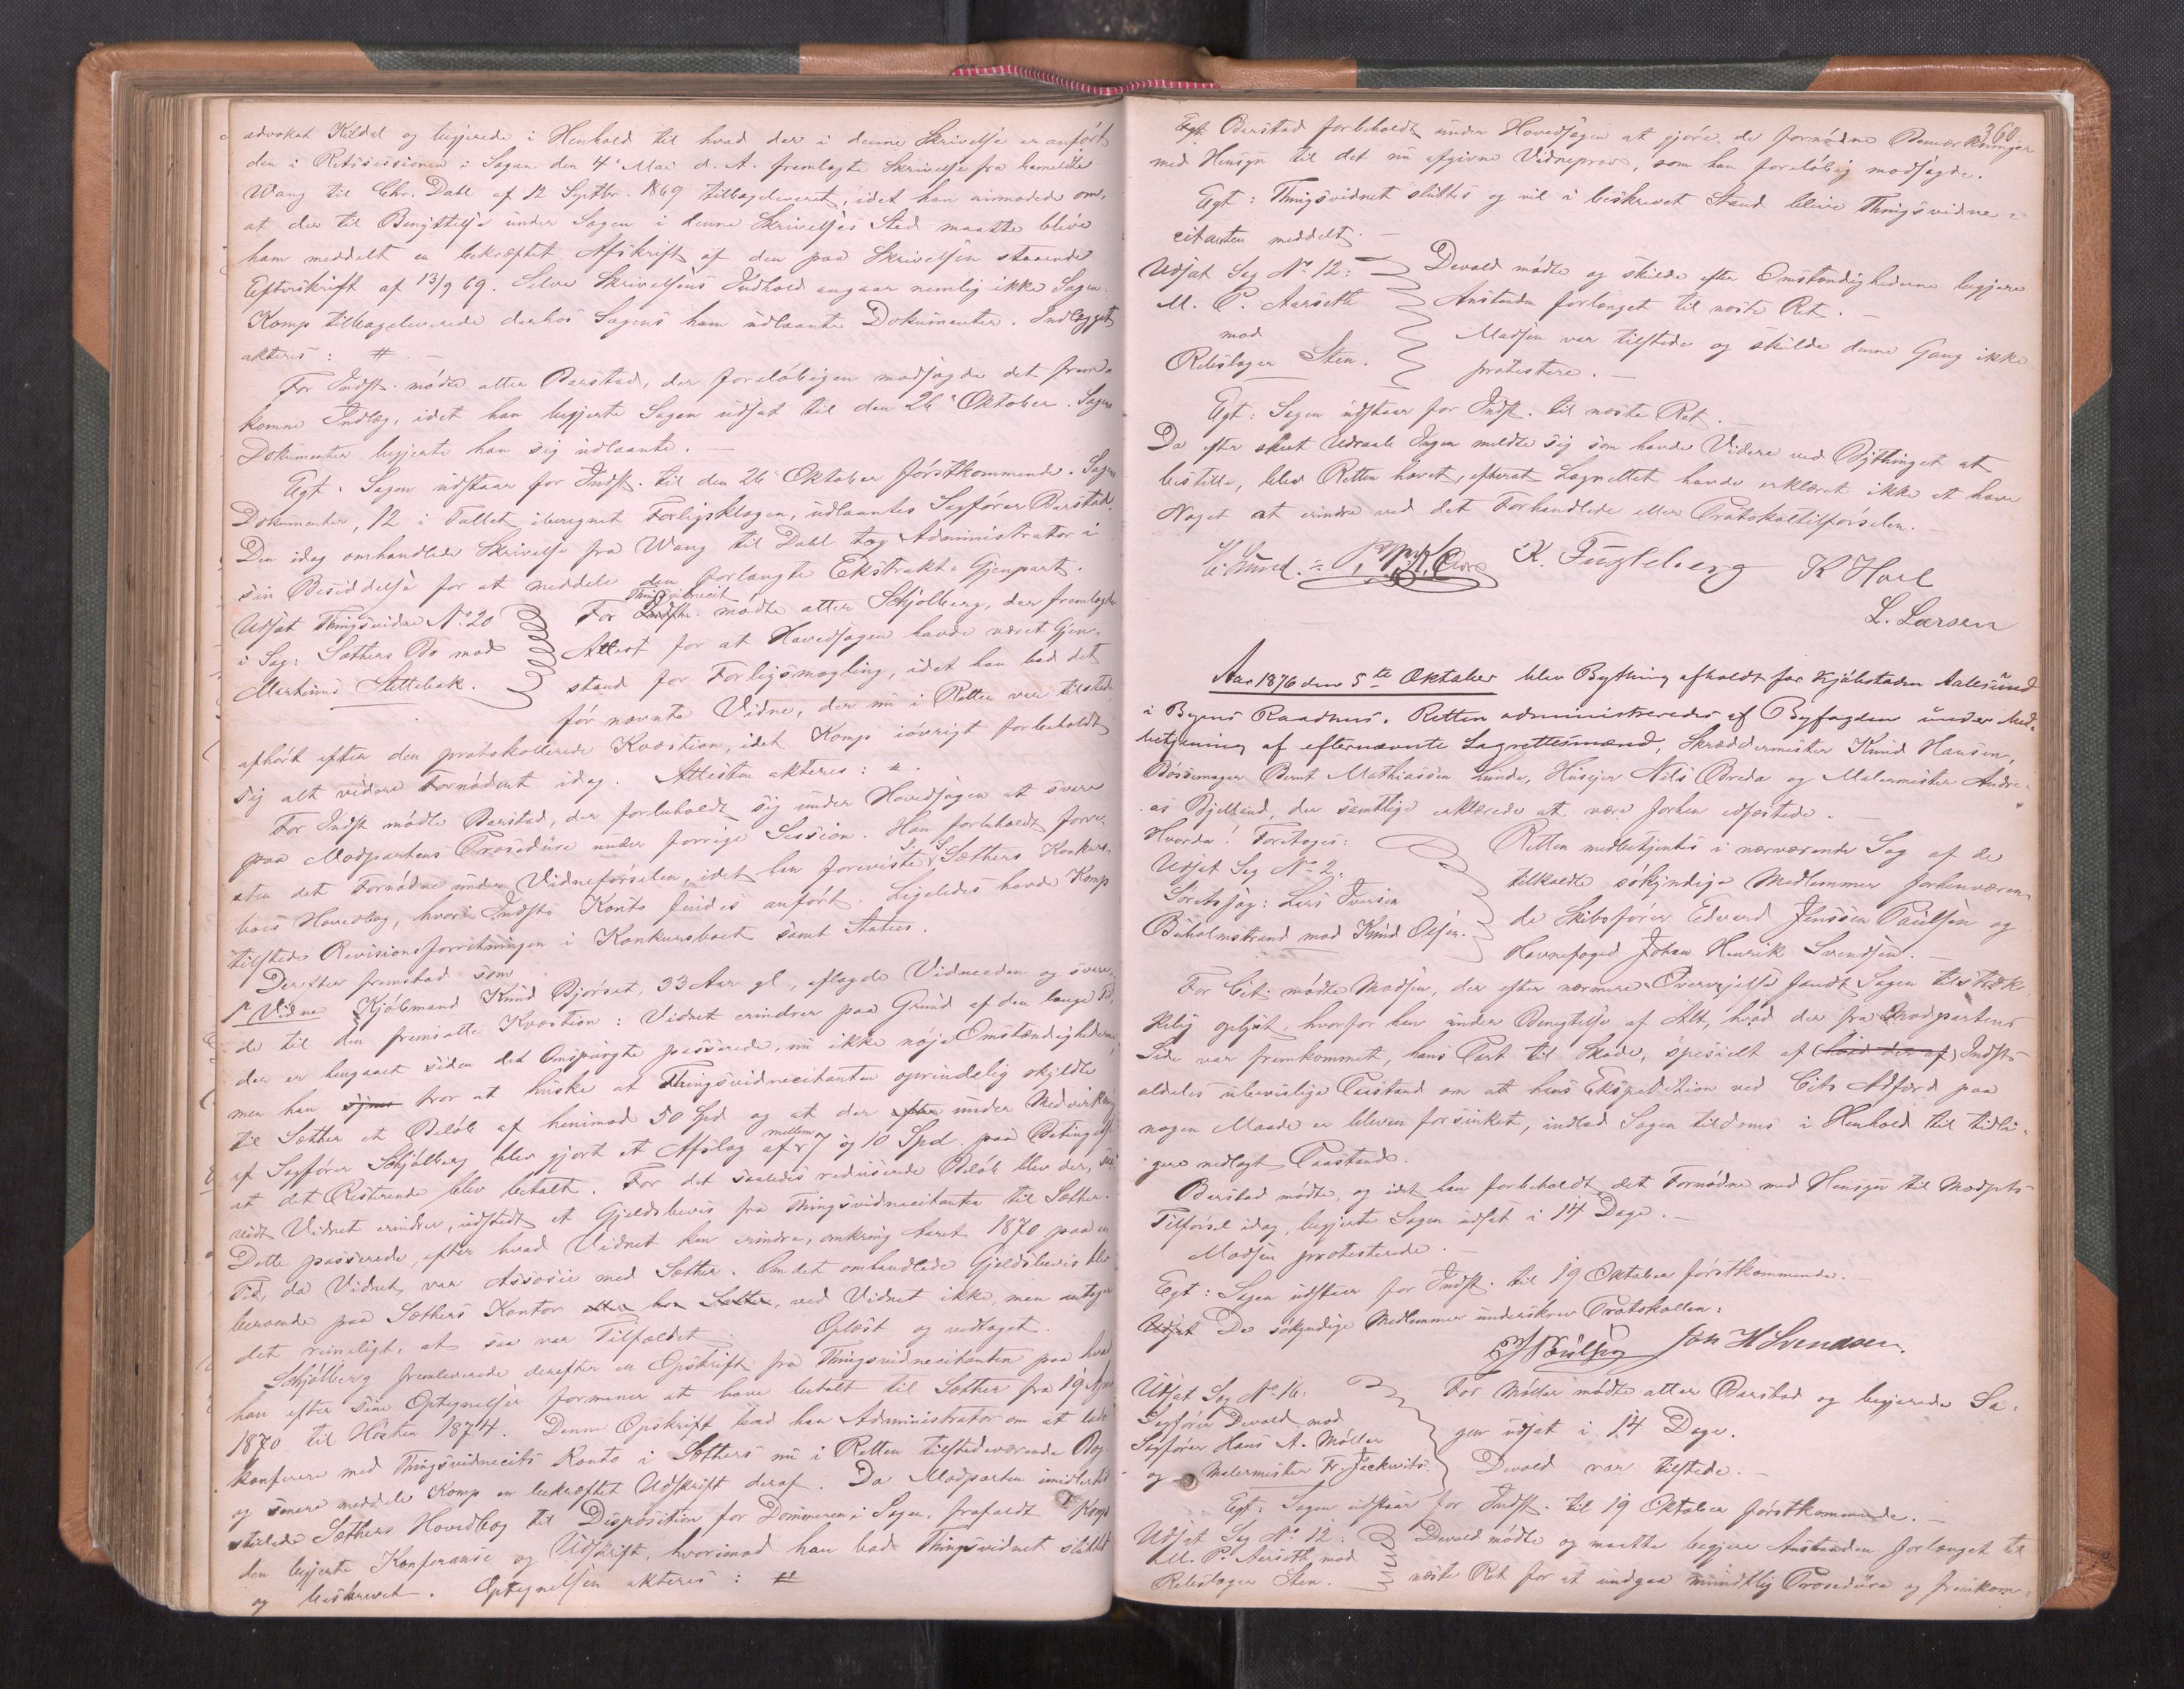 advokat Kildal og begjerede i Henhold til hvad der i denne Skrivelse er anført
den i Retssessionen i Sagen den 4de Mai d. A. fremlagte Skrivelse fra bemeldte
Wang til Chr. Dahl af 12 Septbr. 1869 tilbageleveret, idet han anmodede om,
at der til Benyttelse under Sagen i denne Skrivelses Sted maatte blive
ham meddelt en bekræftet Afskrift af den paa Skrivelsen staaende
Efterskrift af 13/9 69. Selve Skrivelsens Indhold angaar nemlig ikke Sagen.
Komp tilbageleverede derhos Sagens ham udlaante Dokumenter. Indlægget
akteres: #. —
For Indst. mødte atter Barstad, der foreløbigen modsagde det frem-
komne Indlæg, idet han begjerte Sagen udsat til den 26de Oktober. Sagens
Dokumenter begjerte han sig udlaante. —
Egt. Sagen udstaar for Indst. til den 26de Oktober førstkommende. Sagens
Dokumenter, 12 i Tallet, iberegnet Forligsklagen, udlaantes Sagfører Barstad.
Den idag omhandlede Skrivelse fra Wang til Dahl tog Administrator i
sin Besiddelse for at meddele den forlangte Ekstrakt-Gjenpart.
Udsat Thingsvidne No. 20
i Sag: Sæthers Bo mod
Martinus Slettebak.
For Indst. Thingsvidnecit mødte atter Schjølberg, der fremlagde
Attest for at Hovedsagen havde været Gjen-
stand for Forligsmægling, idet han bad det
før nævnte Vidne, der nu i Retten var tilstede
afhørt efter den protokollerede Kvæstion, idet Komp iøvrigt forbeholdt
sig alt videre Fornødent idag. Attesten akteres: #.
For Indst mødte Barstad, der forbeholdt sig under Hovedsagen at svare
paa Modpartens Prosedure under forrige Session. Han forbeholdt forre-
sten det Fornødne under Vidneførselen, idet han foreviste S. S. Sæthers Konkurs-
boes Hovedbog, hvori Indsts Konto findes anført. Ligeledes havde Komp
tilstede Revisionsforretningen i Konkursboet samt Status.
Derefter fremstod som
1ste Vidne Kjøbmand Knud Bjørset, 33 Aar gl, aflagde Vidneeden og svare-
de til den fremsatte Kvæstion: Vidnet erindrer paa Grund af den lange Tid,
der er hengaaet siden det Omspurgte passerede, nu ikke nøje Omstændighederne,
men han synes tror at huske at Thingsvidnecitanten oprindelig skyldte
til Sæther et Beløb af henimod 50 Spd og at der efter under Medvirkning
af Sagfører Schjølberg blev gjort et Afslag af mellem 7 og 10 Spd. paa Betingelse
at det Resterende blev betalt. For det saaledes reduserede Beløb blev der, saa
vidt Vidnet erindrer, udstedt et Gjeldsbevis fra Thingsvidnecitanten til Sæther.
Dette passerede, efter hvad Vidnet kan erindre, omkring Aaret 1870 paa en
Tid, da Vidnet var Assosie med Sæther. Om det omhandlede Gjeldsbevis blev
beroende paa Sæthers Kontor eller hos Sæther, ved Vidnet ikke, men antager
det rimeligt, at saa var Tilfældet. Oplæst og vedtaget.
Schjølberg fremleverede derefter en Opskrift fra Thingsvidnecitanten paa hvad
han efter sine Optegnelser formener at have betalt til Sæther fra 19 April
1870 til Høsten 1874. Denne Opskrift bad han Administrator om at lade
konferere med Thingsvidnecits Konto i Sæthers nu i Retten tilstedeværende Bog
og senere meddele Komp en bekræftet Udskrift deraf. Da Modparten imidlertid
stillede Sæthers Hovedbog til Disposition for Dommeren i Sagen, frafaldt Komp
den begjerte Konferanse og Udskrift, hvorimod han bad Thingsvidnet sluttet
og beskrevet. Optegnelsen akteres: #
360.
Egt. Barstad forbeholdt under Hovedsagen at gjøre de fornødne Bemærkninger
med Hensyn til det nu afgivne Vidneprov, som han foreløbig modsagde.
Egt: Thingsvidnet sluttes og vil i beskrevet Stand blive Thingsvidne-
citanten meddelt. —
Udsat Sag No 12:
M. P. Aarseth
mod
Rebslager Sten.
Devold mødte og skulde efter Omstændighederne begjere
Anstanden forlænget til næste Ret. —
Madsen var tilstede og skulde denne Gang ikke
protestere. —
Egt: Sagen udstaar for Indst. til næste Ret.
Da efter skeet Udraab Ingen meldte sig som havde Videre ved Bythinget at
bestille, blev Retten hævet, efterat Lagrettet havde erklæret ikke at have
Noget at erindre ved det Forhandlede eller Protokoltilførselen. —
K. Fugleberg K Hoel
L. Larsen
Aar 1876 den 5te Oktober blev Bything afholdt for Kjøbstaden Aalesund
i Byens Raadhus. Retten administreredes af Byfogden under Med-
betjening af efternævnte Lagrettesmænd, Skræddermester Knud Hansen,
Bøssemager Bernt Mathiassen Lunde, Huseier Nils Breda og Malermester Andre-
as Bjelland, der samtlige erklærede at være forhen edfæstede. —
Hvorda! Foretoges:
Udsat Sag No 2:
Søretssag: Lars Iversen
Buholmstrand mod Knud Olsen.
Retten medbetjentes i nærværende Sag af de
tilkaldte søkyndige Medlemmer forhenværen-
de Skibsfører Edvard Jenssen Paulsen og
Havnefoged Johan Henrik Svendsen. —
For Cit. mødte Madsen, der efter nærmere Overvejelse fandt Sagen tilstræk-
kelig oplyst, hvorfor han under Benegtelse af Alt, hvad der fra Modpartens
Side var fremkommet, hans Part til Skade, spesielt af (hvad der af) Indsts
aldeles ubevislige Paastand om at hans Ekspedition ved Cits Adfærd paa
nogen Maade er bleven forsinket, indlod Sagen tildoms i Henhold til tidli-
gere nedlagt Paastand.
Barstad mødte, og idet han forbeholdt det Fornødne med Hensyn til Modpts
Tilførsel idag, begjerte Sagen udsat i 14 Dage. —
Madsen protesterede. —
Egt: Sagen udstaar for Indst. til 19 Oktober førstkommende. —
Udsat De søkyndige Medlemmer underskrev Protokollen:
EJPaulsen Joh H Svendsen.
Udsat Sag No 16:
Sagfører Devold mod
Sagfører Hans A. Møller
og Malermester Fr. Jackwits.
For Møller mødte atter Barstad og begjerede Sa-
gen udsat i 14 Dage.
Devold var tilstede. —
Egt: Sagen udstaar for Indst. til 19 Oktober førstkommende. —
Udsat Sag No 12:
M. P. Aarseth mod
Rebslager Sten.
Devold mødte og maatte begjere Anstanden forlænget til
næste Ret for at undgaa mundtlig Prosedure og fremkom-